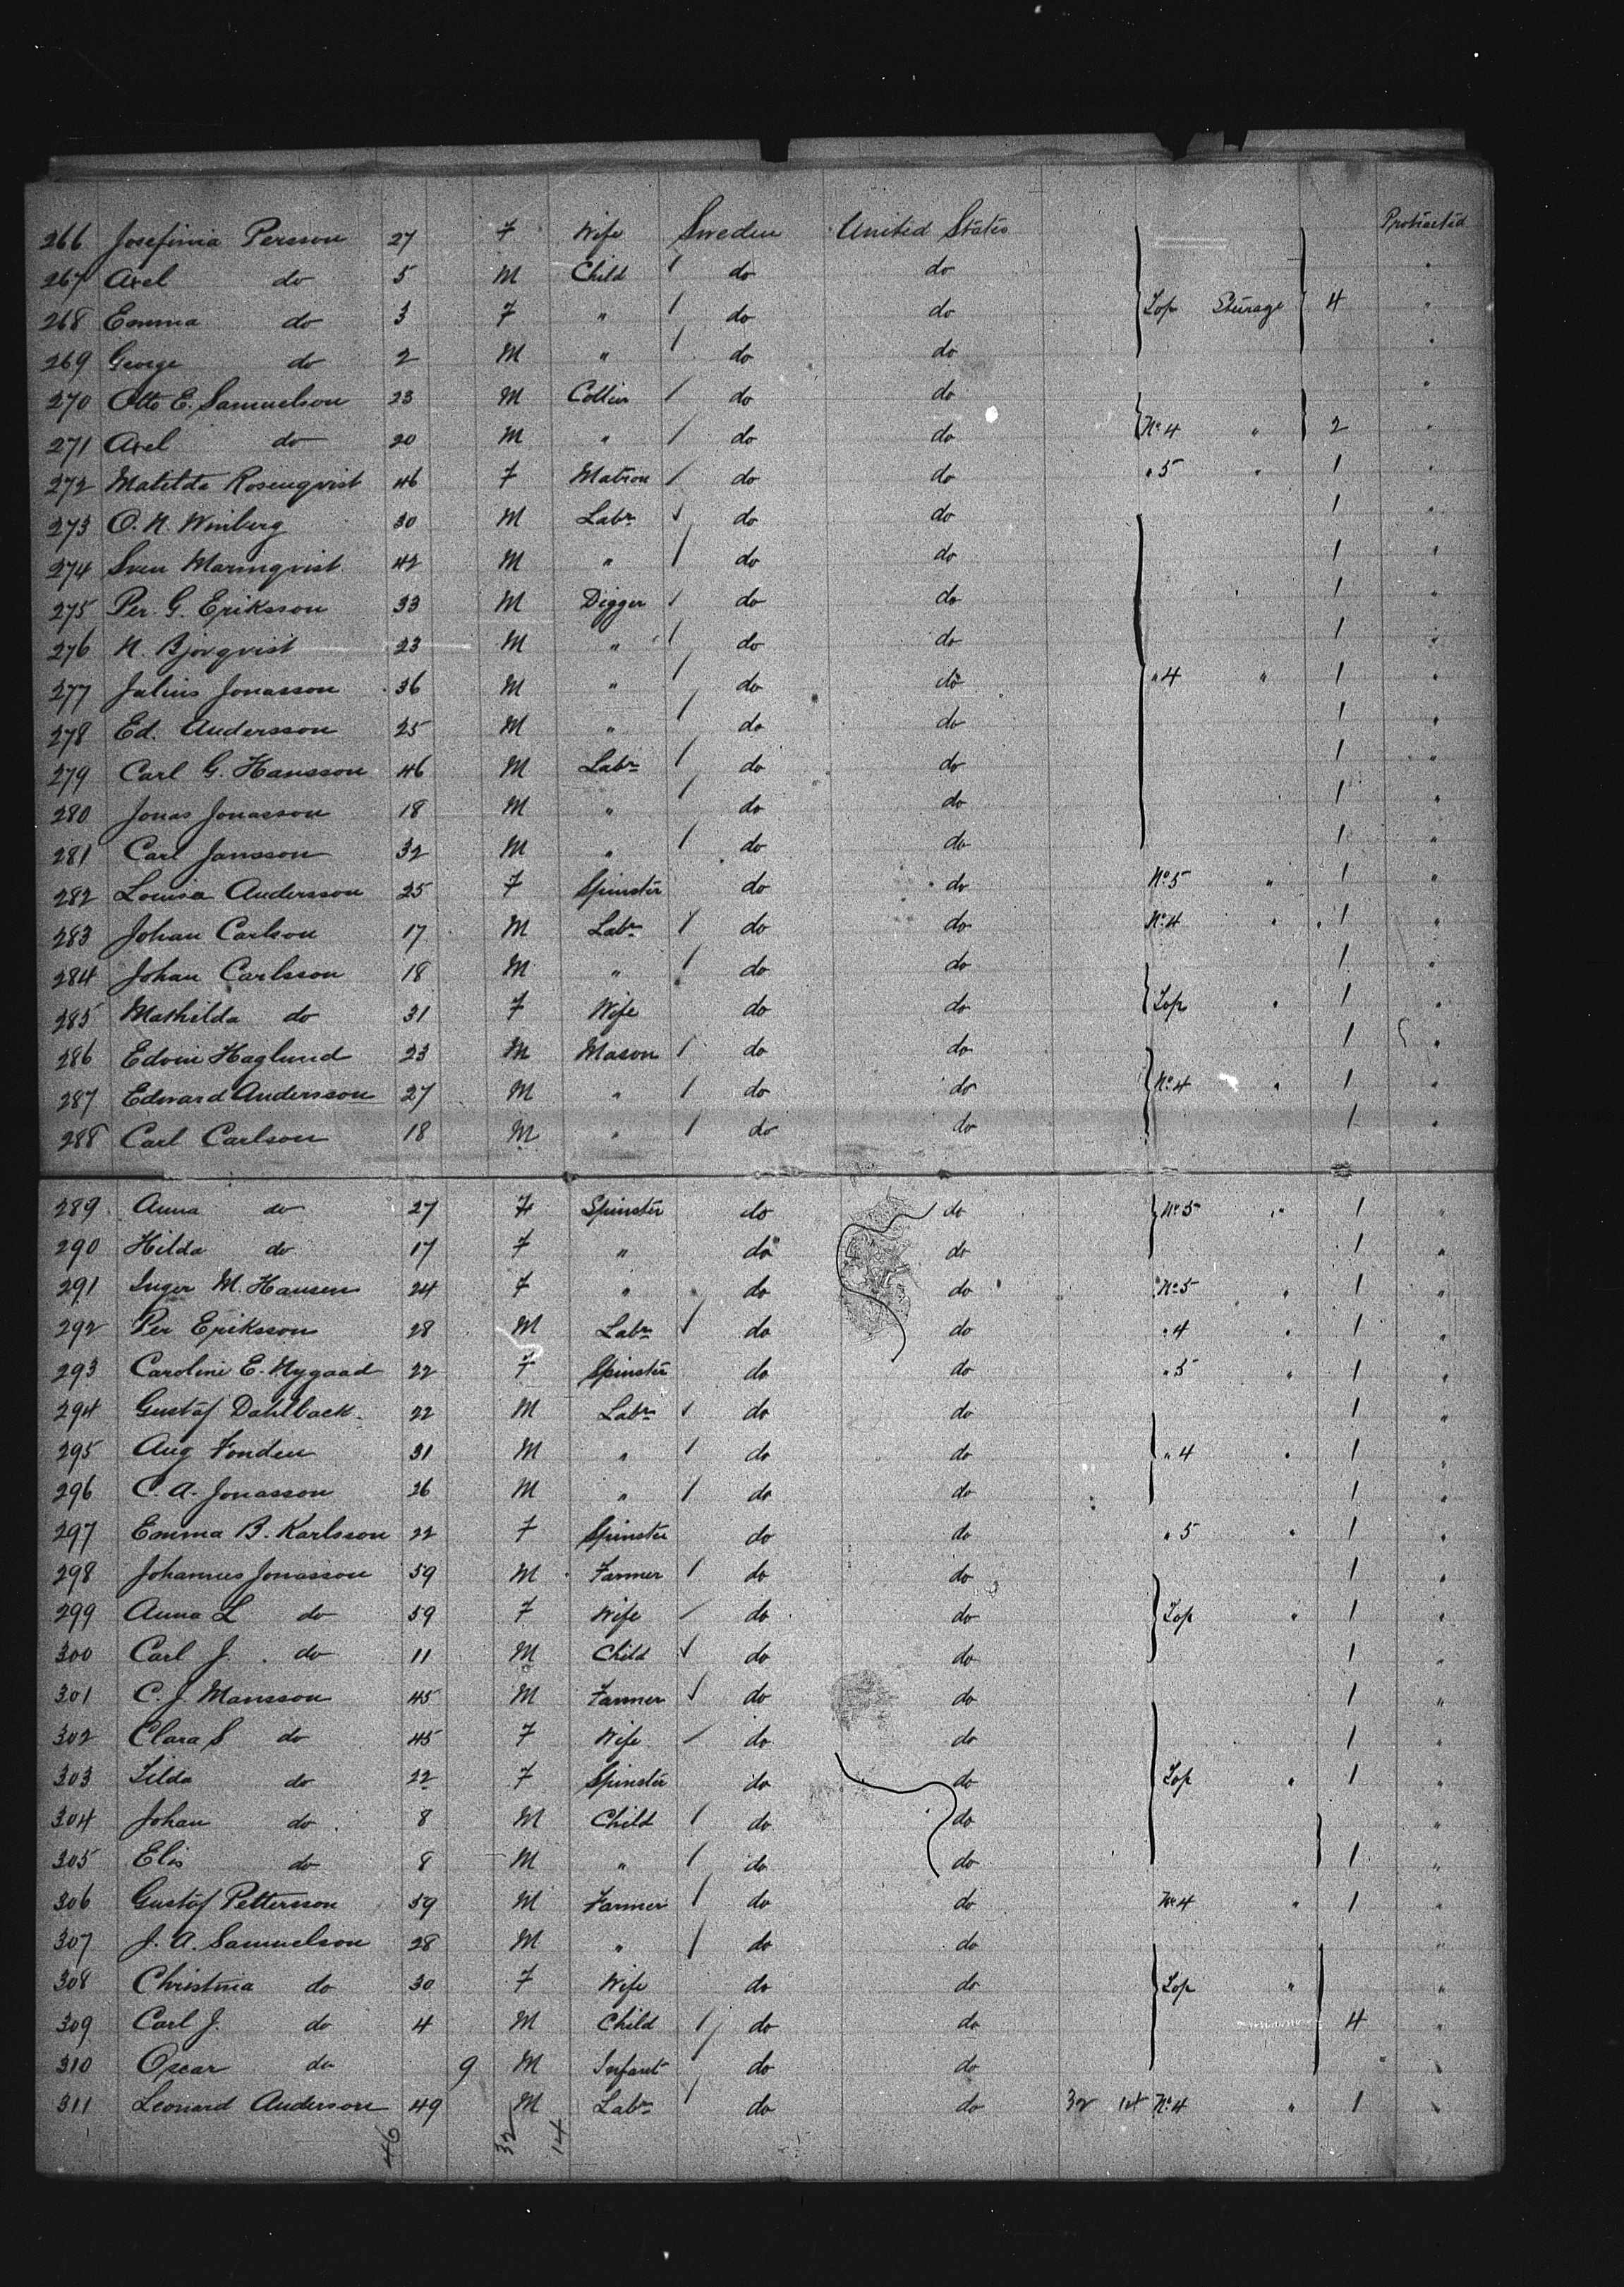 266 Josefinia Persson 27 F Wife Sweden United States Protracted
267 Axel do 5 M Child / do do "
268 Emma do 3 F " / do do Top Steerage 4 "
269 George do 2 M " / do do "
270 Otto E. Samuelson 23 M Collier / do do "
271 Axel do 20 M " / do do No 4 " 2 "
272 Matilda Rosenqvist 46 F Matron / do do " 5 " 1 "
273 O. N. Winberg 30 M Labr / do do 1 "
274 Sven Marinqvist 42 M " / do do 1 "
275 Per. G. Eriksson 33 M Digger / do do 1 "
276 N. Bjorqvist 23 M " / do do 1 "
277 Julius Jonasson 36 M " / do do " 4 " 1 "
278 Ed. Andersson 25 M " / do do 1 "
279 Carl G. Hansson 46 M Labr / do do 1 "
280 Jonas Jonasson 18 M " / do do 1 "
281 Carl Jansson 32 M " / do do 1 "
282 Louisa Andersson 25 F Spinster do do No 5 " 1 "
283 Johan Carlson 17 M Labr / do do No 4 " 1 "
284 Johan Carlsson 18 M " / do do 1 "
285 Mathilda do 31 F Wife do do Top " 1 "
286 Edvin Haglund 23 M Mason / do do 1 "
287 Edward Andersson 27 M " / do do No 4 " 1 "
288 Carl Carlson 18 M " / do do 1 "
289 Anna do 27 F Spinster do do No 5 " 1 "
290 Hilda do 17 F " do do 1 "
291 Inger M. Hansen 24 F " do do No 5 " 1 "
292 Per Eriksson 28 M Labr / do do " 4 " 1 "
293 Caroline E. Nygaad 22 F Spinster do do " 5 " 1 "
294 Gustaf Dahlback 22 M Labr / do do 1 "
295 Aug Fonden 31 M " / do do " 4 " 1 "
296 C. A. Jonasson 26 M " / do do 1 "
297 Emma B. Karlsson 22 F Spinster do do " 5 " 1 "
298 Johannes Jonasson 59 M Farmer / do do 1 "
299 Anna L do 59 F Wife / do do Top " 1 "
300 Carl J. do 11 M Child / do do 1 "
301 C. J. Mansson 45 M Farmer / do do 1 "
302 Clara S do 45 F Wife / do do 1 "
303 Tilda do 22 F Spinster do do Top " 1 "
304 Johan do 8 M Child / do do "
305 Elis do 8 M " / do do 1 "
306 Gustaf Pettersson 59 M Farmer / do do No 4 " 1 "
307 J. A. Samuelson 28 M " / do do "
308 Christina do 30 F Wife do do Top " "
309 Carl J. do 4 M Child / do do 4 "
310 Oscar do 9 M Infant do do "
311 Leonard Anderson 49 M Labr / do do 32 14 No 4 " 1 "
46 32 14